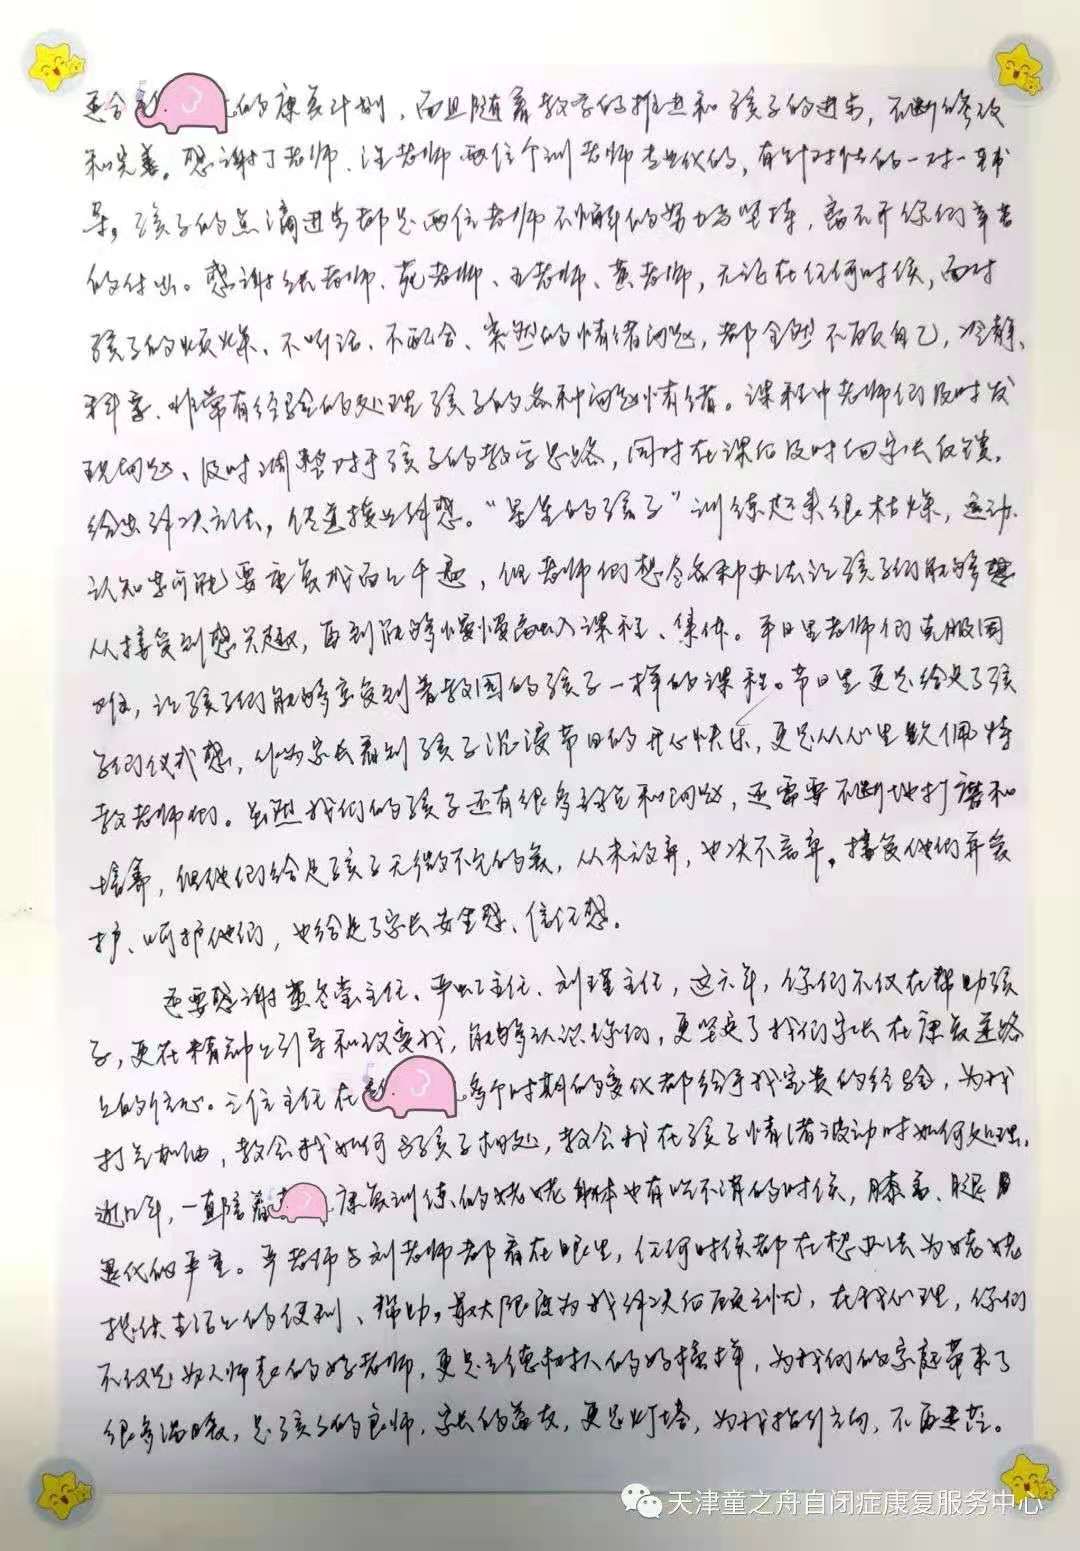 适合 的康复计划，而且随着教学的推进和孩子的进步，不断修改
和完善。感谢丁老师、汪老师两位个训老师专业化的，有针对性的一对一辅
导。孩子的点滴进步都是两位老师不懈的努力与坚持，离不开你们辛苦
的付出。感谢 老师、苑老师、王老师、黄老师，无论在任何时候，面对
孩子的烦燥、不听话、不配合、突然的情绪问题，都全然不顾自己，冷静、
科学、非常有经验的处理孩子的各种问题情绪。课程中老师们及时发
现问题、及时调整对于孩子的教学思路，同时在课后及时向家长反馈，
给出解决方法， 接 。“星星的孩子”训练起来很枯燥，运动、
认知等可能要重复成百上千遍，但老师们想尽各种办法让孩子们能够
从接受到感兴趣，再到能够慢慢融入课程、集体。平日里老师们克服困
难，让孩子们能够享受到普教园的孩子一样的课程。节日里更是给足了孩
子们仪式感，作为家长看到孩子沉浸节日的开心快乐，更是从心里敬佩特
教老师们。虽然我们的孩子还有很多 和问题，还需要不断地打磨和
培养，但他们给足孩子无微不至的爱，从未放弃，也决不离弃。接受他们并爱
护、呵护他们，也给足了家长安全感、信任感。
还要感谢黄冬莹主任、平虹主任、刘瑾主任，这六年，你们不仅在帮助孩
子，更在精神上引导和改变我，能够认识你们，更坚定了我们家长在康复道路
上的信心。三位主任在 多个时期的变化都给予我宝贵的经验，为我
打气加油，教会我如何与孩子相处，教会我在孩子情绪波动时如何处理。
近几年，一直陪着 康复训练的姥姥身体也有吃不消的时候，膝盖、腿
退化的严重。平老师与刘老师都看在眼里，任何时候都在想办法为姥姥
提供生活上的便利、帮助，最大限度为我解决后顾之忧，在我心理，你们
不仅是为人师表的好老师，更是立德树人的好榜样，为我们的家庭带来了
很多温暖，是孩子的良师，家长的益友，更是灯塔，为我指引方向，不再迷茫。
天津童之舟自闭症康复服务中心